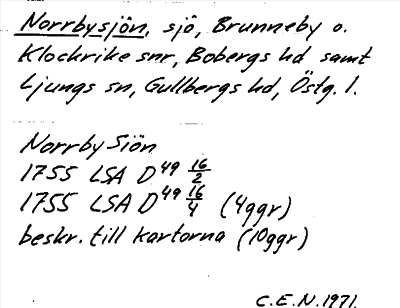 Norrbysjön, sjö, Brunneby o.
Klockrike snr, Bobergs hd samt
Ljungs sn, Gullbergs hd, Östg. l.
Norrby Siön
1755 LSA D⁴⁹ 16/2
1755 LSA D⁴⁹ 16/4 (4ggr)
beskr. till kartorna (10ggr)
C.E.N. 1971.